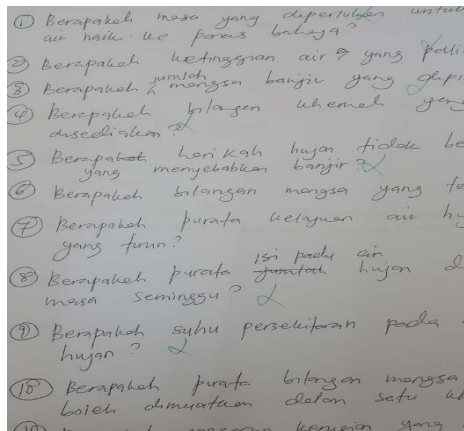 ① Berapakah masa yang diperlukan untuk
air naik ke paras bahaya?
② Berapakah ketinggian air yang pali
③ Berapakah jumlah mangsa banjir yang dipi
④ Berapakah bilangan khemah yang
disediakan?
⑤ Berapakah hari kah hujan tidak be
yang menyebabkan banjir?
⑥ Berapakah bilangan mangsa yang te
⑦ Berapakah purata kelajuan air hu
yang turun?
⑧ Berapakah purata isi padu air hujan d
masa seminggu?
⑨ Berapakah suhu persekitaran pada
hujan?
⑩ Berapakah purata bilangan mangsa
boleh dimuatkan dalam satu kh
kerugian yang